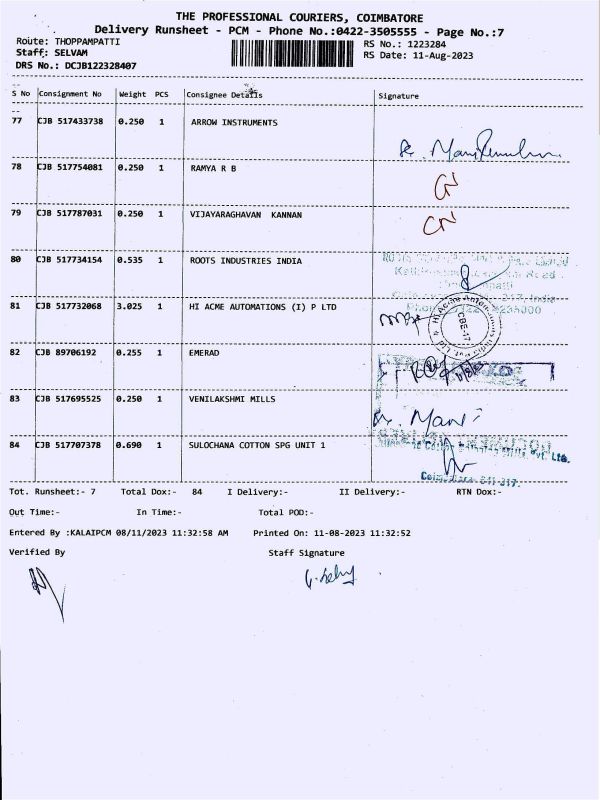 THE PROFESSIONAL COURIERS, COIMBATORE
Delivery Runsheet - PCM - Phone No.:0422-3505555 - Page No.:7
Route: THOPPAMPATTI RS No.: 1223284
Staff: SELVAM RS Date: 11-Aug-2023
DRS No.: DCJB122328407
S No Consignment No Weight PCS Consignee Details Signature
77 CJB 517433738 0.250 1 ARROW INSTRUMENTS
78 CJB 517754081 0.250 1 RAMYA R B
79 CJB 517787031 0.250 1 VIJAYARAGHAVAN KANNAN
80 CJB 517734154 0.535 1 ROOTS INDUSTRIES INDIA
81 CJB 517732068 3.025 1 HI ACME AUTOMATIONS (I) P LTD
CBE-17
82 CJB 89706192 0.255 1 EMERAD
83 CJB 517695525 0.250 1 VENILAKSHMI MILLS
Mani
84 CJB 517707378 0.690 1 SULOCHANA COTTON SPG UNIT 1
Mills Pvt. Ltd.
Tot. Runsheet:- 7 Total Dox:- 84 I Delivery:- II Delivery:- RTN Dox:-
Out Time:- In Time:- Total POD:-
Entered By :KALAIPCM 08/11/2023 11:32:58 AM Printed On: 11-08-2023 11:32:52
Verified By Staff Signature